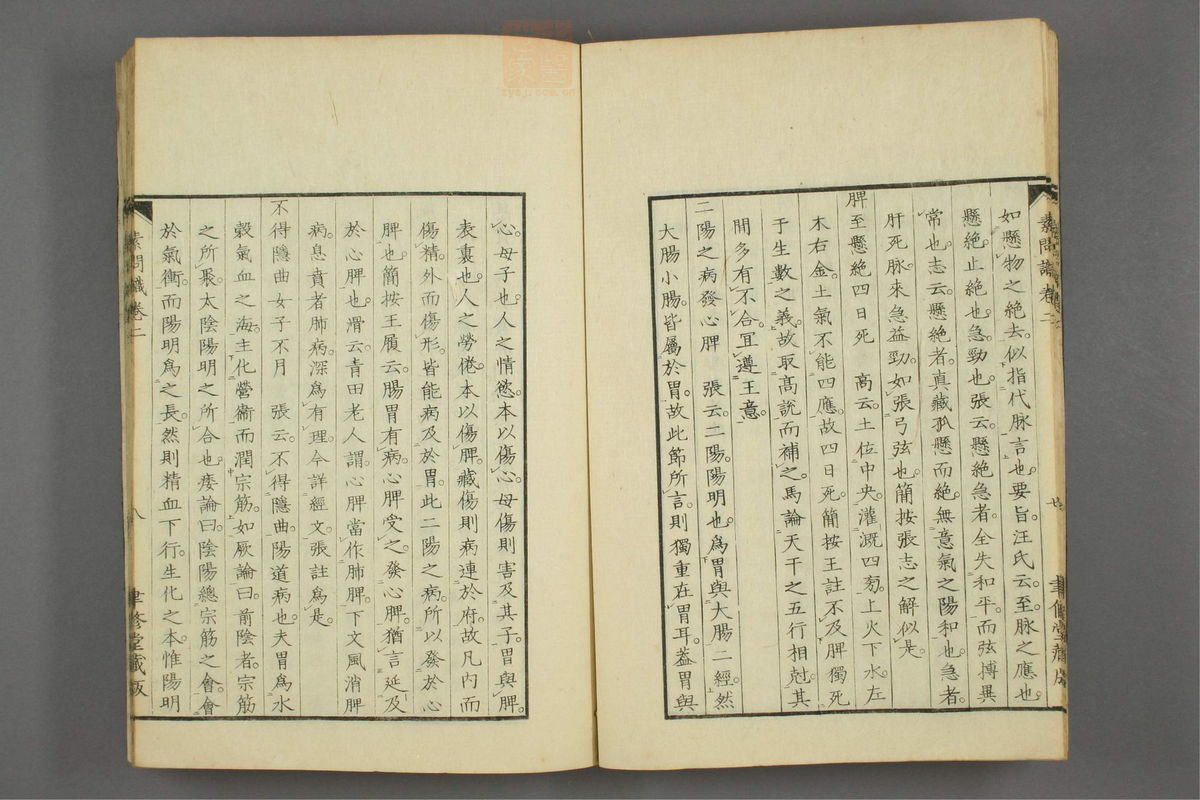 如懸物之絶去。似指代脉言也。要旨汪氏云。至脉之應也。
懸絶止絶也。急勁也。張云。懸絶急者。全失和平。而弦搏異
常也。志云。懸絶者。真藏孤懸而絶。無意氣之陽和也。急者。
肝死脉。來急益勁。如張弓弦也。簡按張志之解似是。
脾至懸絶四日死　高云。土位中央。灌溉四旁。上火下水。左
木右金。土氣不能四應。故四日死。簡按王註不及脾獨死
于生數之義。故取高説而補之。馬論天干之五行相尅。其
間多有不合。宜遵王意。
二陽之病發心脾　張云。二陽。陽明也。爲胃與大腸二經。然
大腸小腸。皆屬於胃。故此節所言。則獨重在胃耳。蓋胃與
心。母子也。人之情慾。本以傷心。母傷則害及其子。胃與脾。
表裏也。人之勞倦。本以傷脾。藏傷則病連於府。故凡内而
傷精。外而傷形。皆能病及於胃。此二陽之病。所以發於心
脾也。簡按王履云。腸胃有病。心脾受之。發心脾。猶言延及
於心脾也。滑云。青田老人謂。心脾當作肺脾。下文風消脾
病。息賁者肺病。深爲有理。今詳經文。張註爲是。
不得隱曲女子不月　張云。不得隱曲。陽道病也。夫胃爲水
穀氣血之海。主化營衞而潤宗筋。如厥論曰。前陰者。宗筋
之所聚。太陰陽明之所合也。痿論曰。陰陽總宗筋之會。會
於氣衝。而陽明爲之長。然則精血下行。生化之本。惟陽明
素問識卷二
八
聿修堂藏版